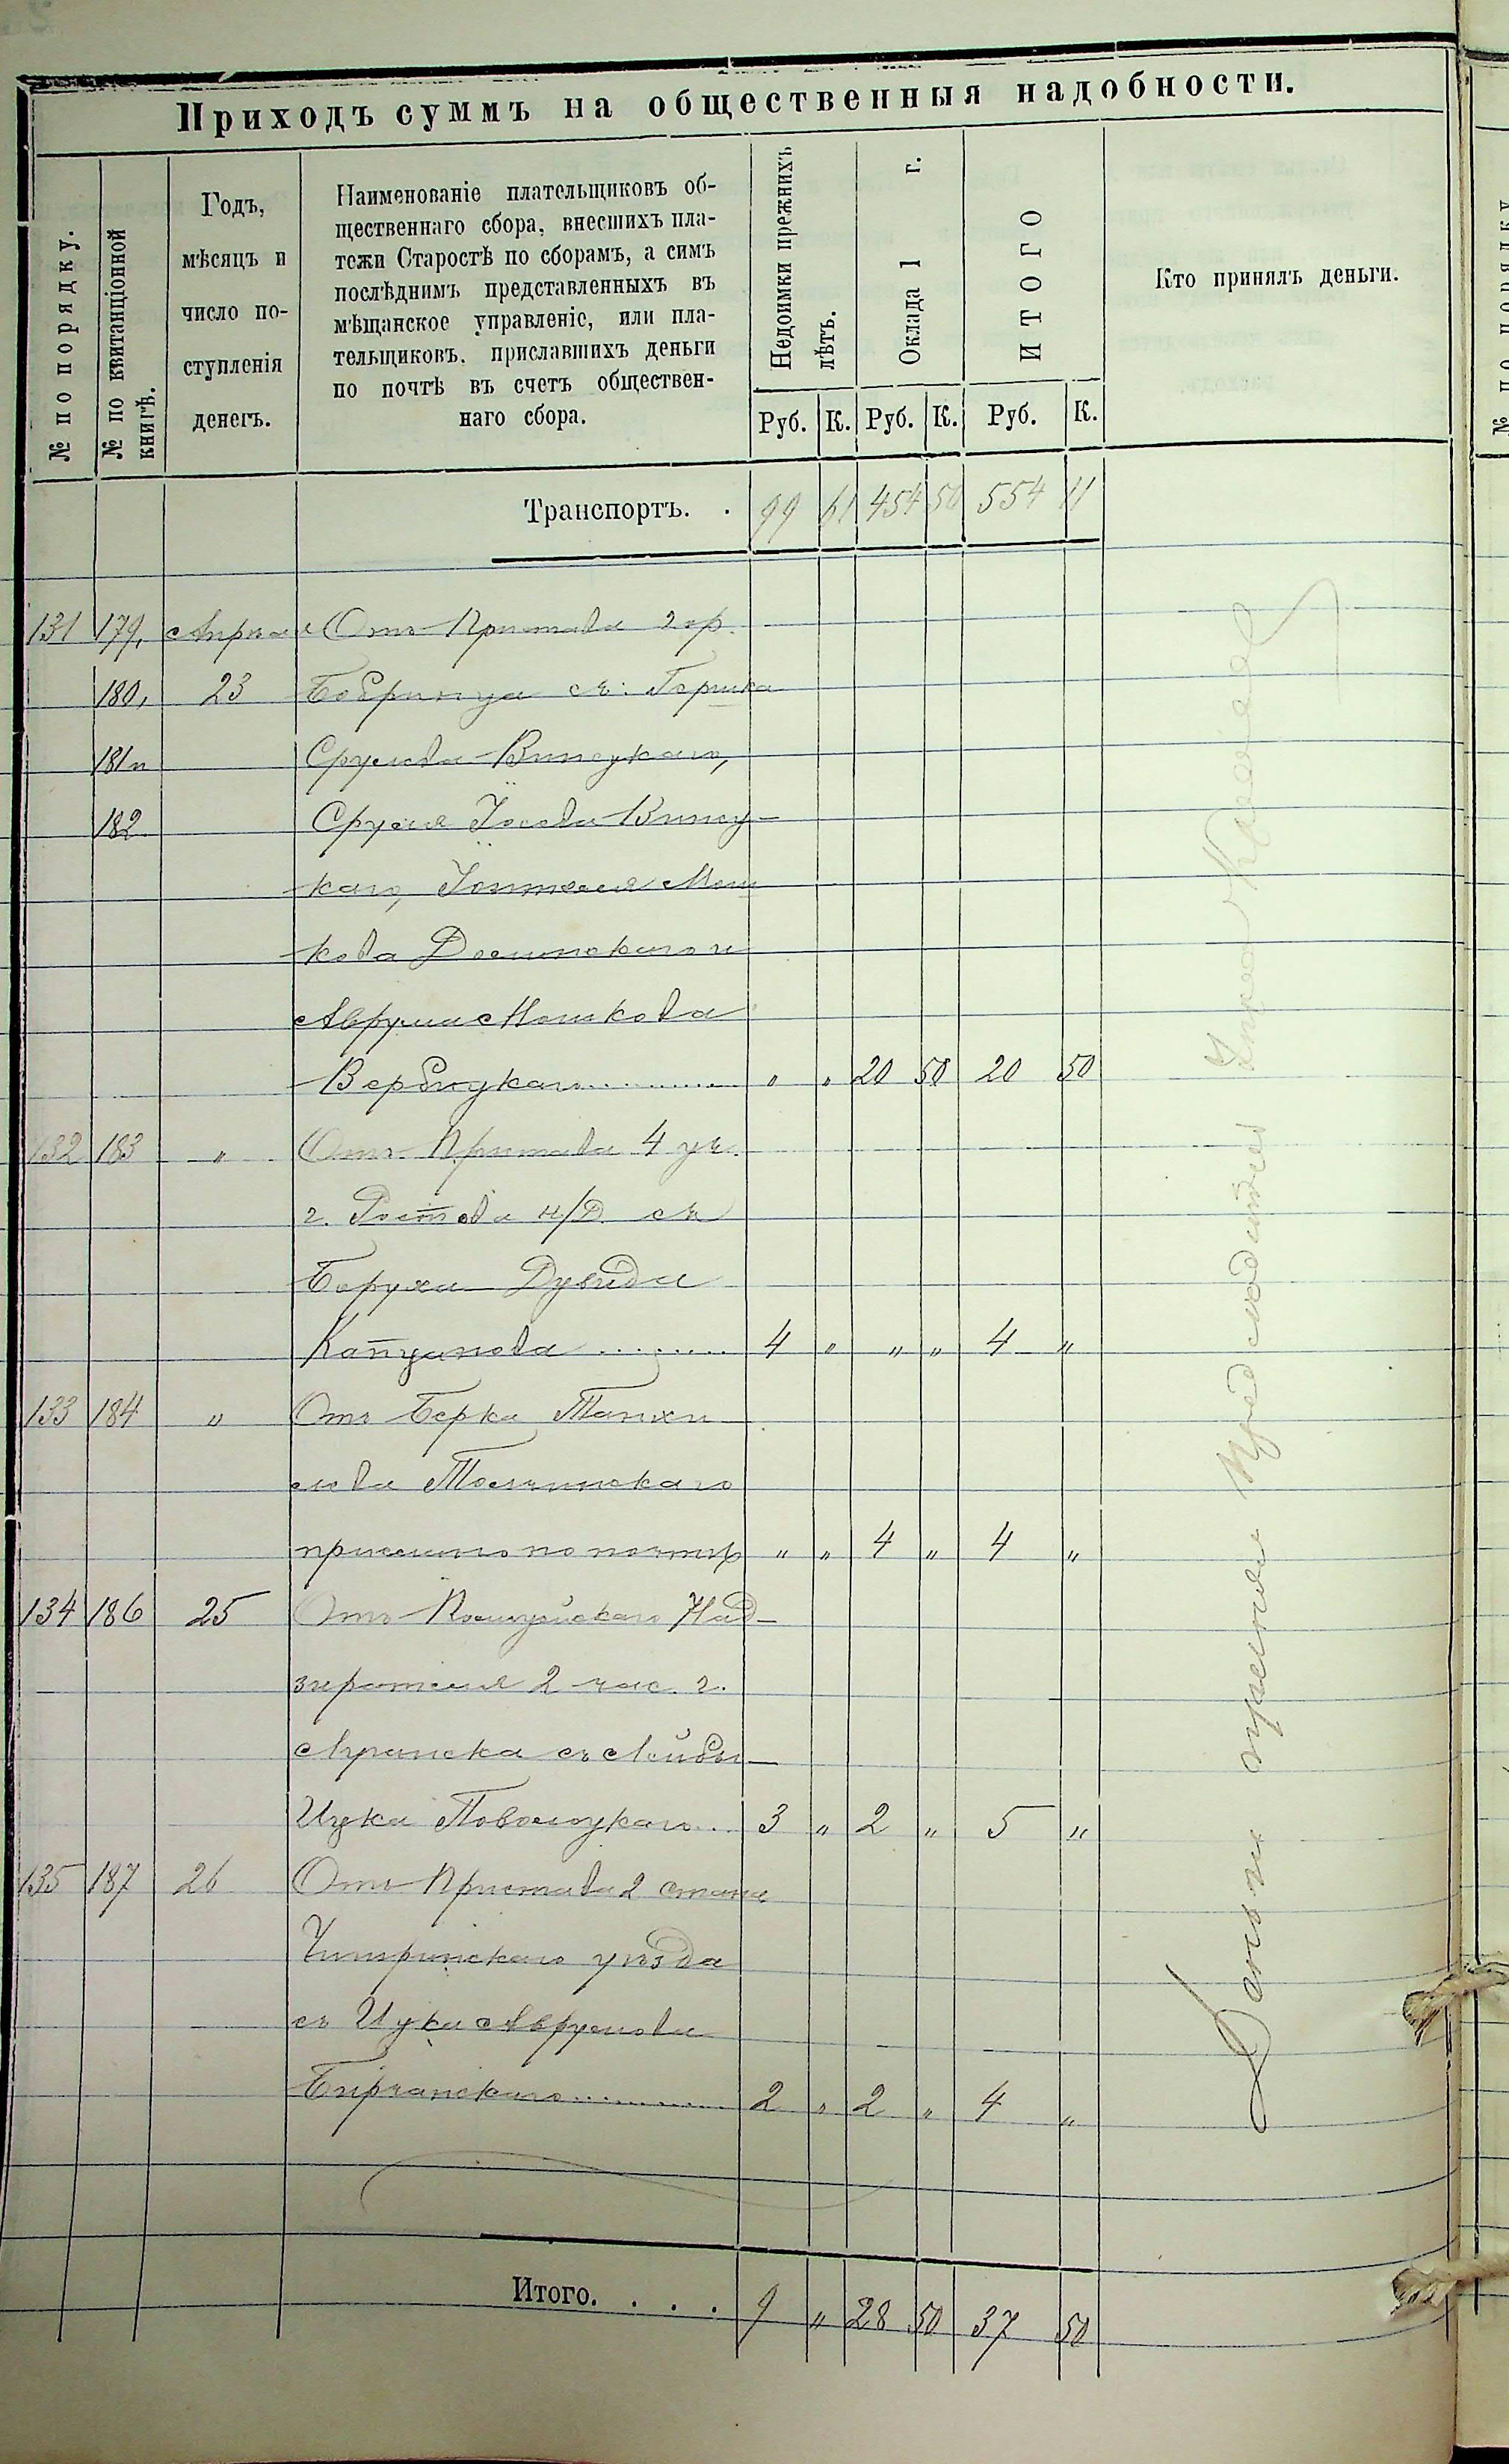 Приходъ суммъ на общественныя надобности.
№ по порядку.
№ по квитанціонной
книгѣ.
Годъ,
мѣсяцъ и
число по-
ступленія
денегъ.
Наименованіе плательщиковъ об-
щественнаго сбора, внесшихъ пла-
тежи Старостѣ по сборамъ, а симъ
послѣднимъ представленныхъ въ
мѣщанское управленіе, или пла-
тельщиковъ, приславшихъ деньги
по почтѣ въ счетъ обществен-
наго сбора.
Недоимки прежнихъ
лѣтъ.
Оклада 1 г.
ИТОГО
Кто принялъ деньги.
Руб. К. Руб. К. Руб. К.
Транспортъ. . 99 61 454 50 554 11
131 179, Апрѣля Отъ Пристава гор.
180, 23 Бобринца съ: Гершка
181 и Сруля
182 Сруля Іосева
каго, Мош
кова Долинскаго и
Аврума Мошкова
Вербицкаго " " 20 50 20 50
132 183 " Отъ Пристава 4 уч.
г. Ростова н/Д съ
Боруха Дувида
Капцанова 4 " " " 4 "
133 184 " Отъ Берка Танхи
лева Толчинскаго
прислано по почтѣ " " 4 " 4 "
134 186 25 Отъ Полицейскаго Над-
зирателя 2 час. г.
Луганска съ Лейбы
Ицка Поволоцкаго.. 3 " 2 " 5 "
135 187 26 Отъ Пристава 2 стана
Чигиринскаго уѣзда
съ Ицка Аврумова
Бирчанскаго 2 " 2 " 4 "
Итого. . . . 9 " 28 50 37 50
Деньги принялъ